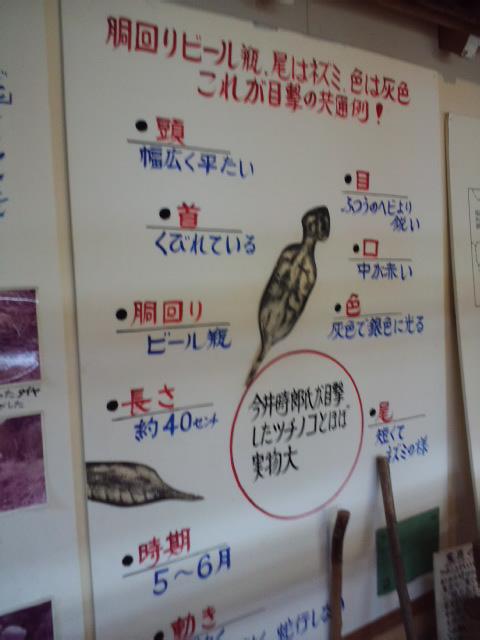 胴回りビール瓶、尾はネズミ、色は灰色
これが目撃の共通例!
●頭
幅広く平たい
●首
くびれている
●胴回り
ビール瓶
●長さ
約40センチ
●時期
5~6月
●動き
蛇行しない
●目
ふつうのヘビより
鋭い
●口
中が赤い
●色
灰色で銀色に光る
今井時郎氏が目撃
したツチノコとほぼ
実物大
●尾
短くて
ネズミの様